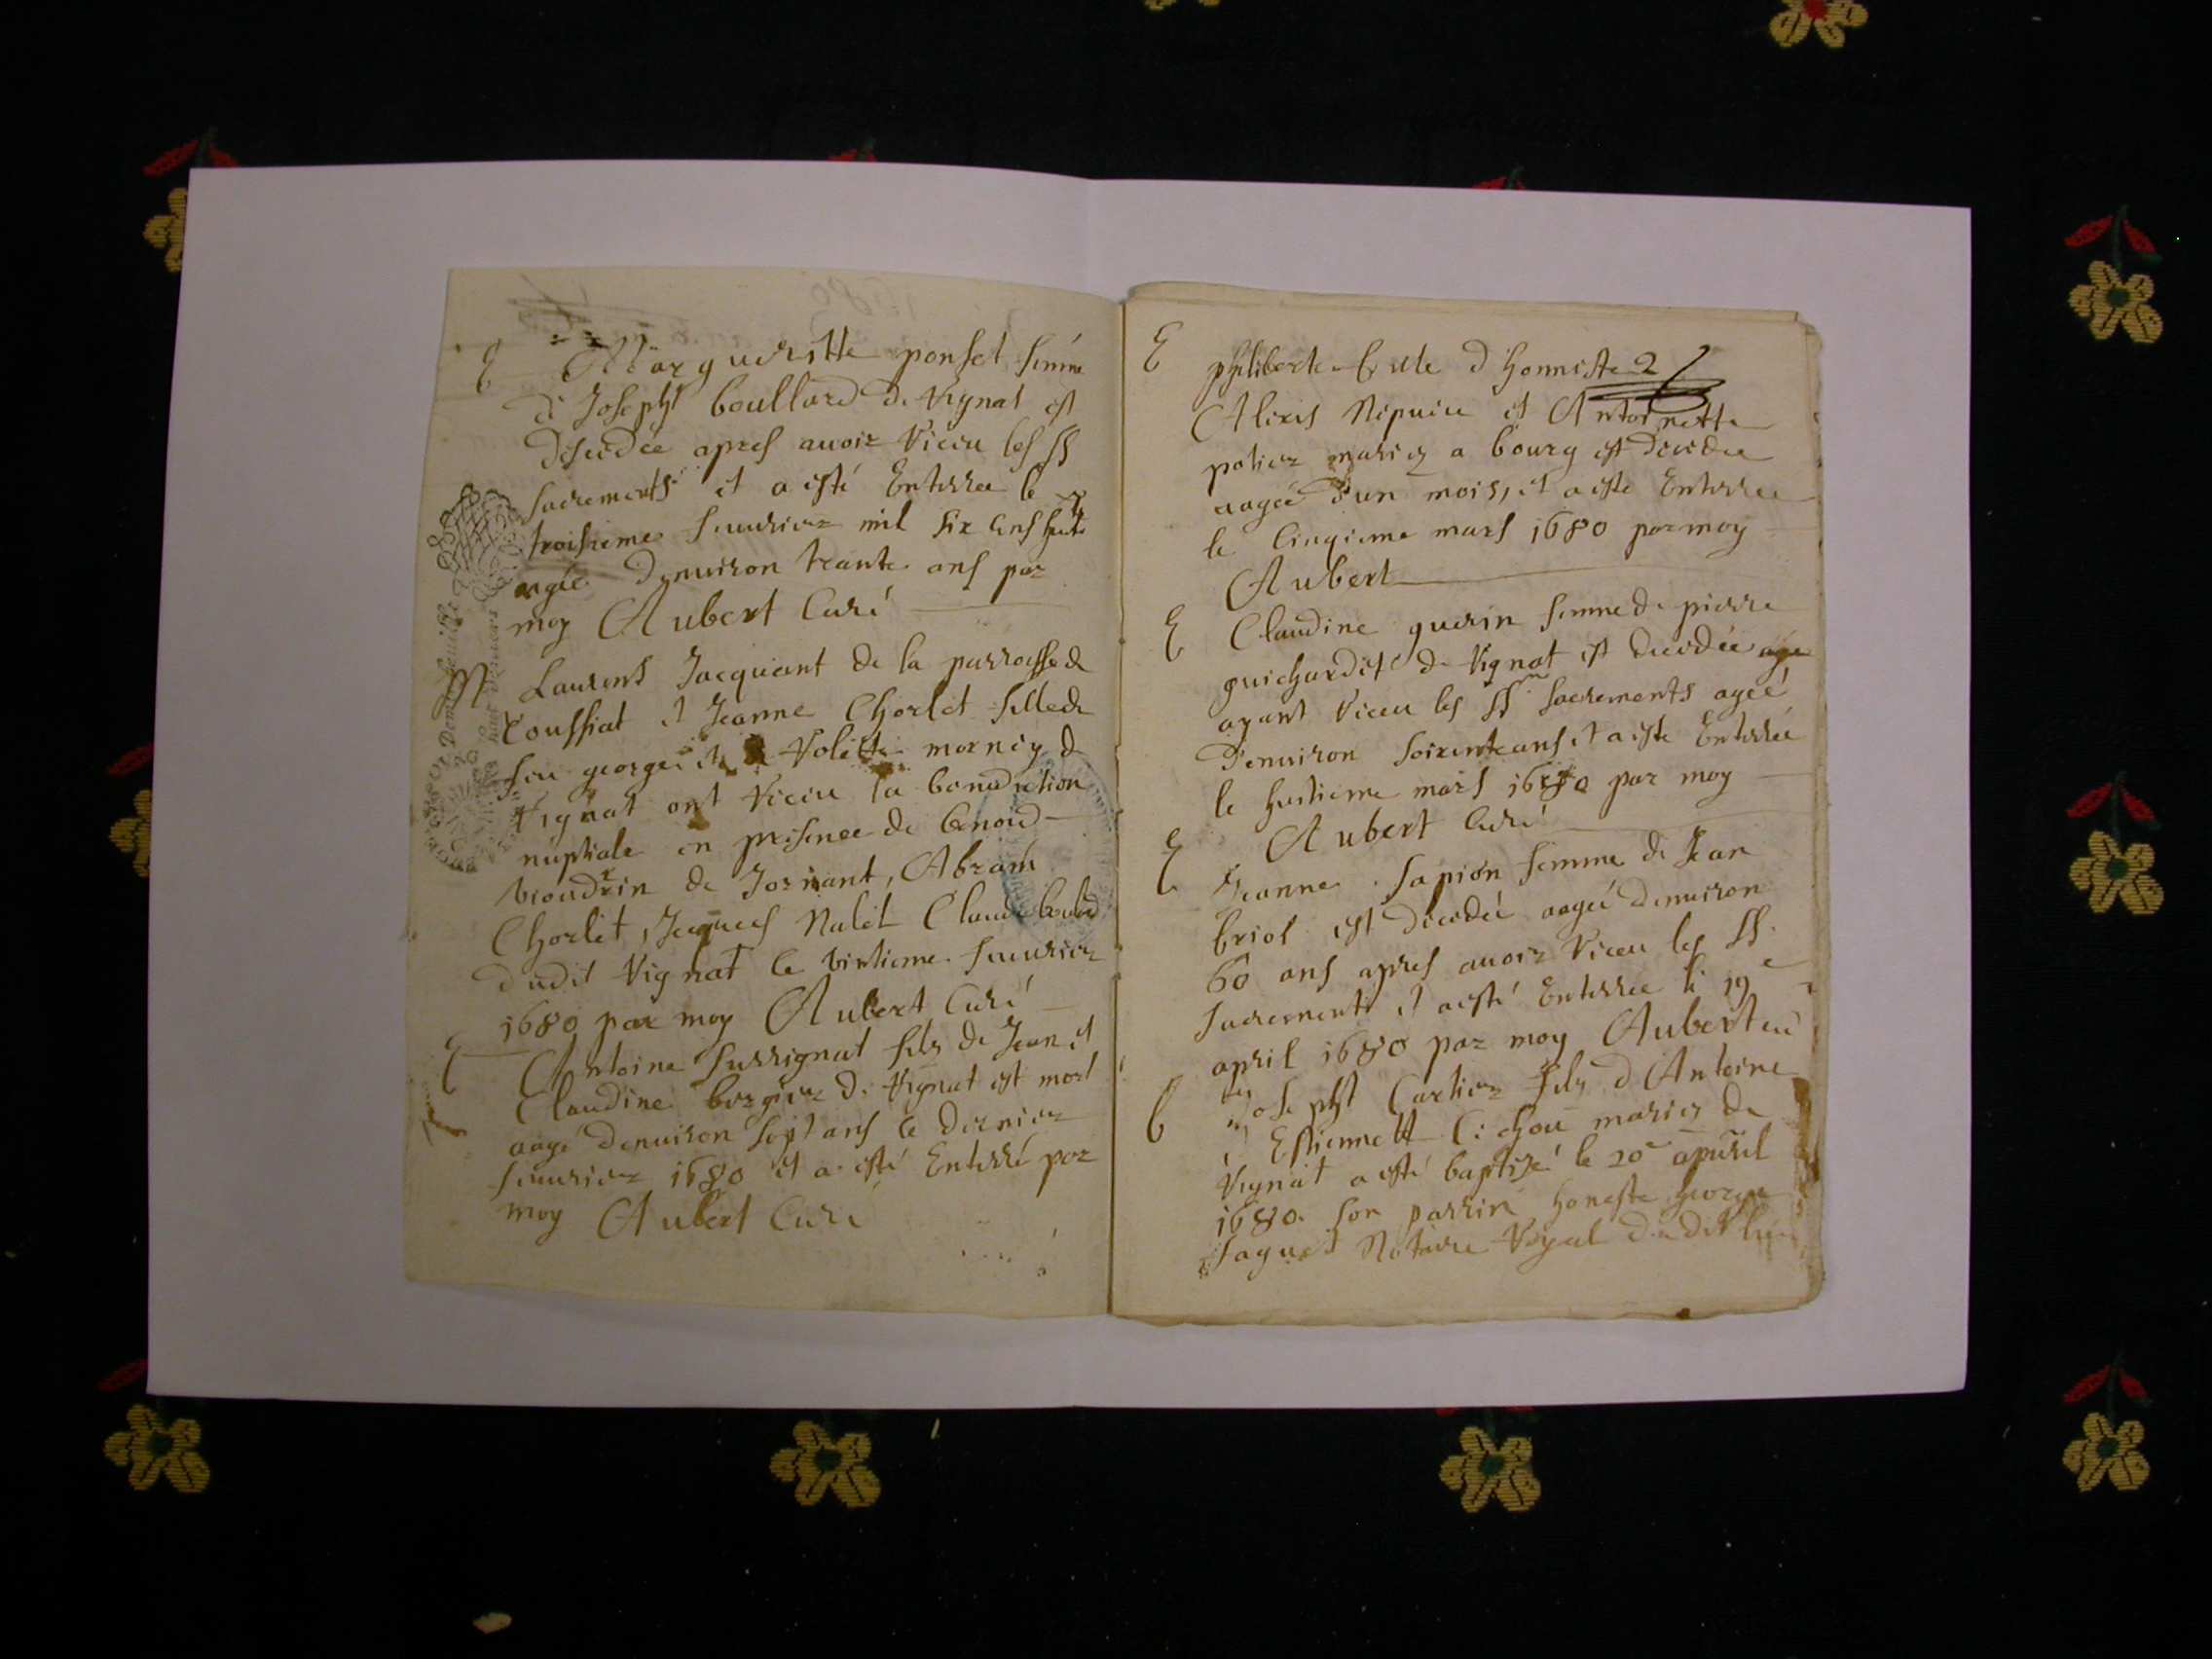 E Margueritte ponset femme
de Joseph boullard de Vignat est
decedée apres avoir receu les SS
sacrements et a esté Enterree le
troisieme feuurier mil six cens
agée denuiron trante ans par
moy Aubert Curé
M Laurens Jacquant de la parroisse de
Coussiat et Jeanne Chorlet fille de
feu george et morney de
Vignat ont receu la benediction
nuptiale en presence de benoid
de Jornant, Abram
Chorlet, Jacques Nalet Claude
dudit Vignat le vintieme feuurier
1680 par moy Aubert Curé
E Antoine surrignat fils de Jean et
Claudine bergier de Vignat est mort
aagé denuiron sept ans le dernier
feuurier 1680 et a esté Enterré par
moy Aubert Curé
E philiberte fille d'honneste 2
Alexis et Antoinette
potier mariez a bourg est decedee
aagée d'un mois, et a esté Enterree
le cinqieme mars 1680 par moy
Aubert
E Claudine guerin femme de pierre
de Vignat est decedée
ayant receu les SS sacrements ageé
denuiron soixente ans et a esté Enterrée
le huitieme mars 1680 par moy
Aubert Curé
E Jeanne sapion femme de Jean
briol est decedeé aageé denuiron
60 ans apres auoir receu les SS.
sacrements et a esté Enterrée le 19e
april 1680 par moy Aubert cu
ré
b Joseph Cartier fils d'Antoine
et Estiennette mariez de
Vignat a esté baptizé le 20e apuril
1680. son parrin honeste george
Jaguet Notaire Royal dudit lieu